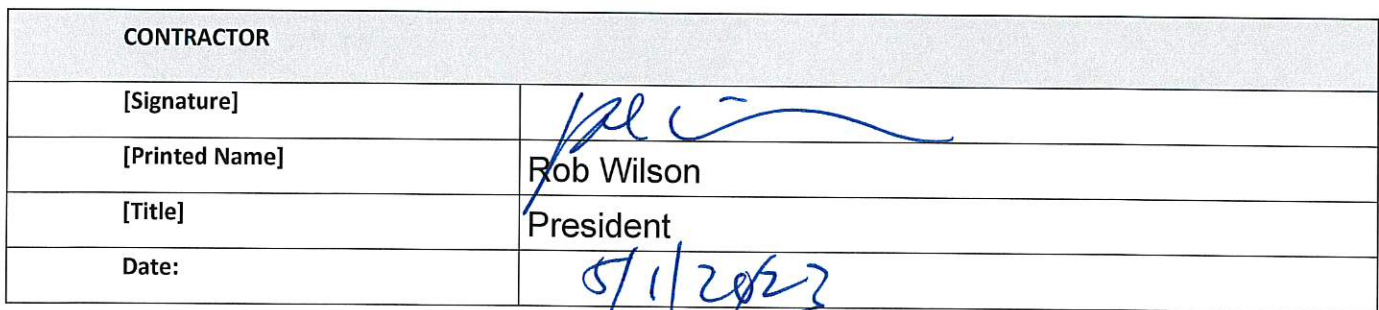 CONTRACTOR
[Signature]
[Printed Name] Rob Wilson
[Title] President
Date: 5/1/2023